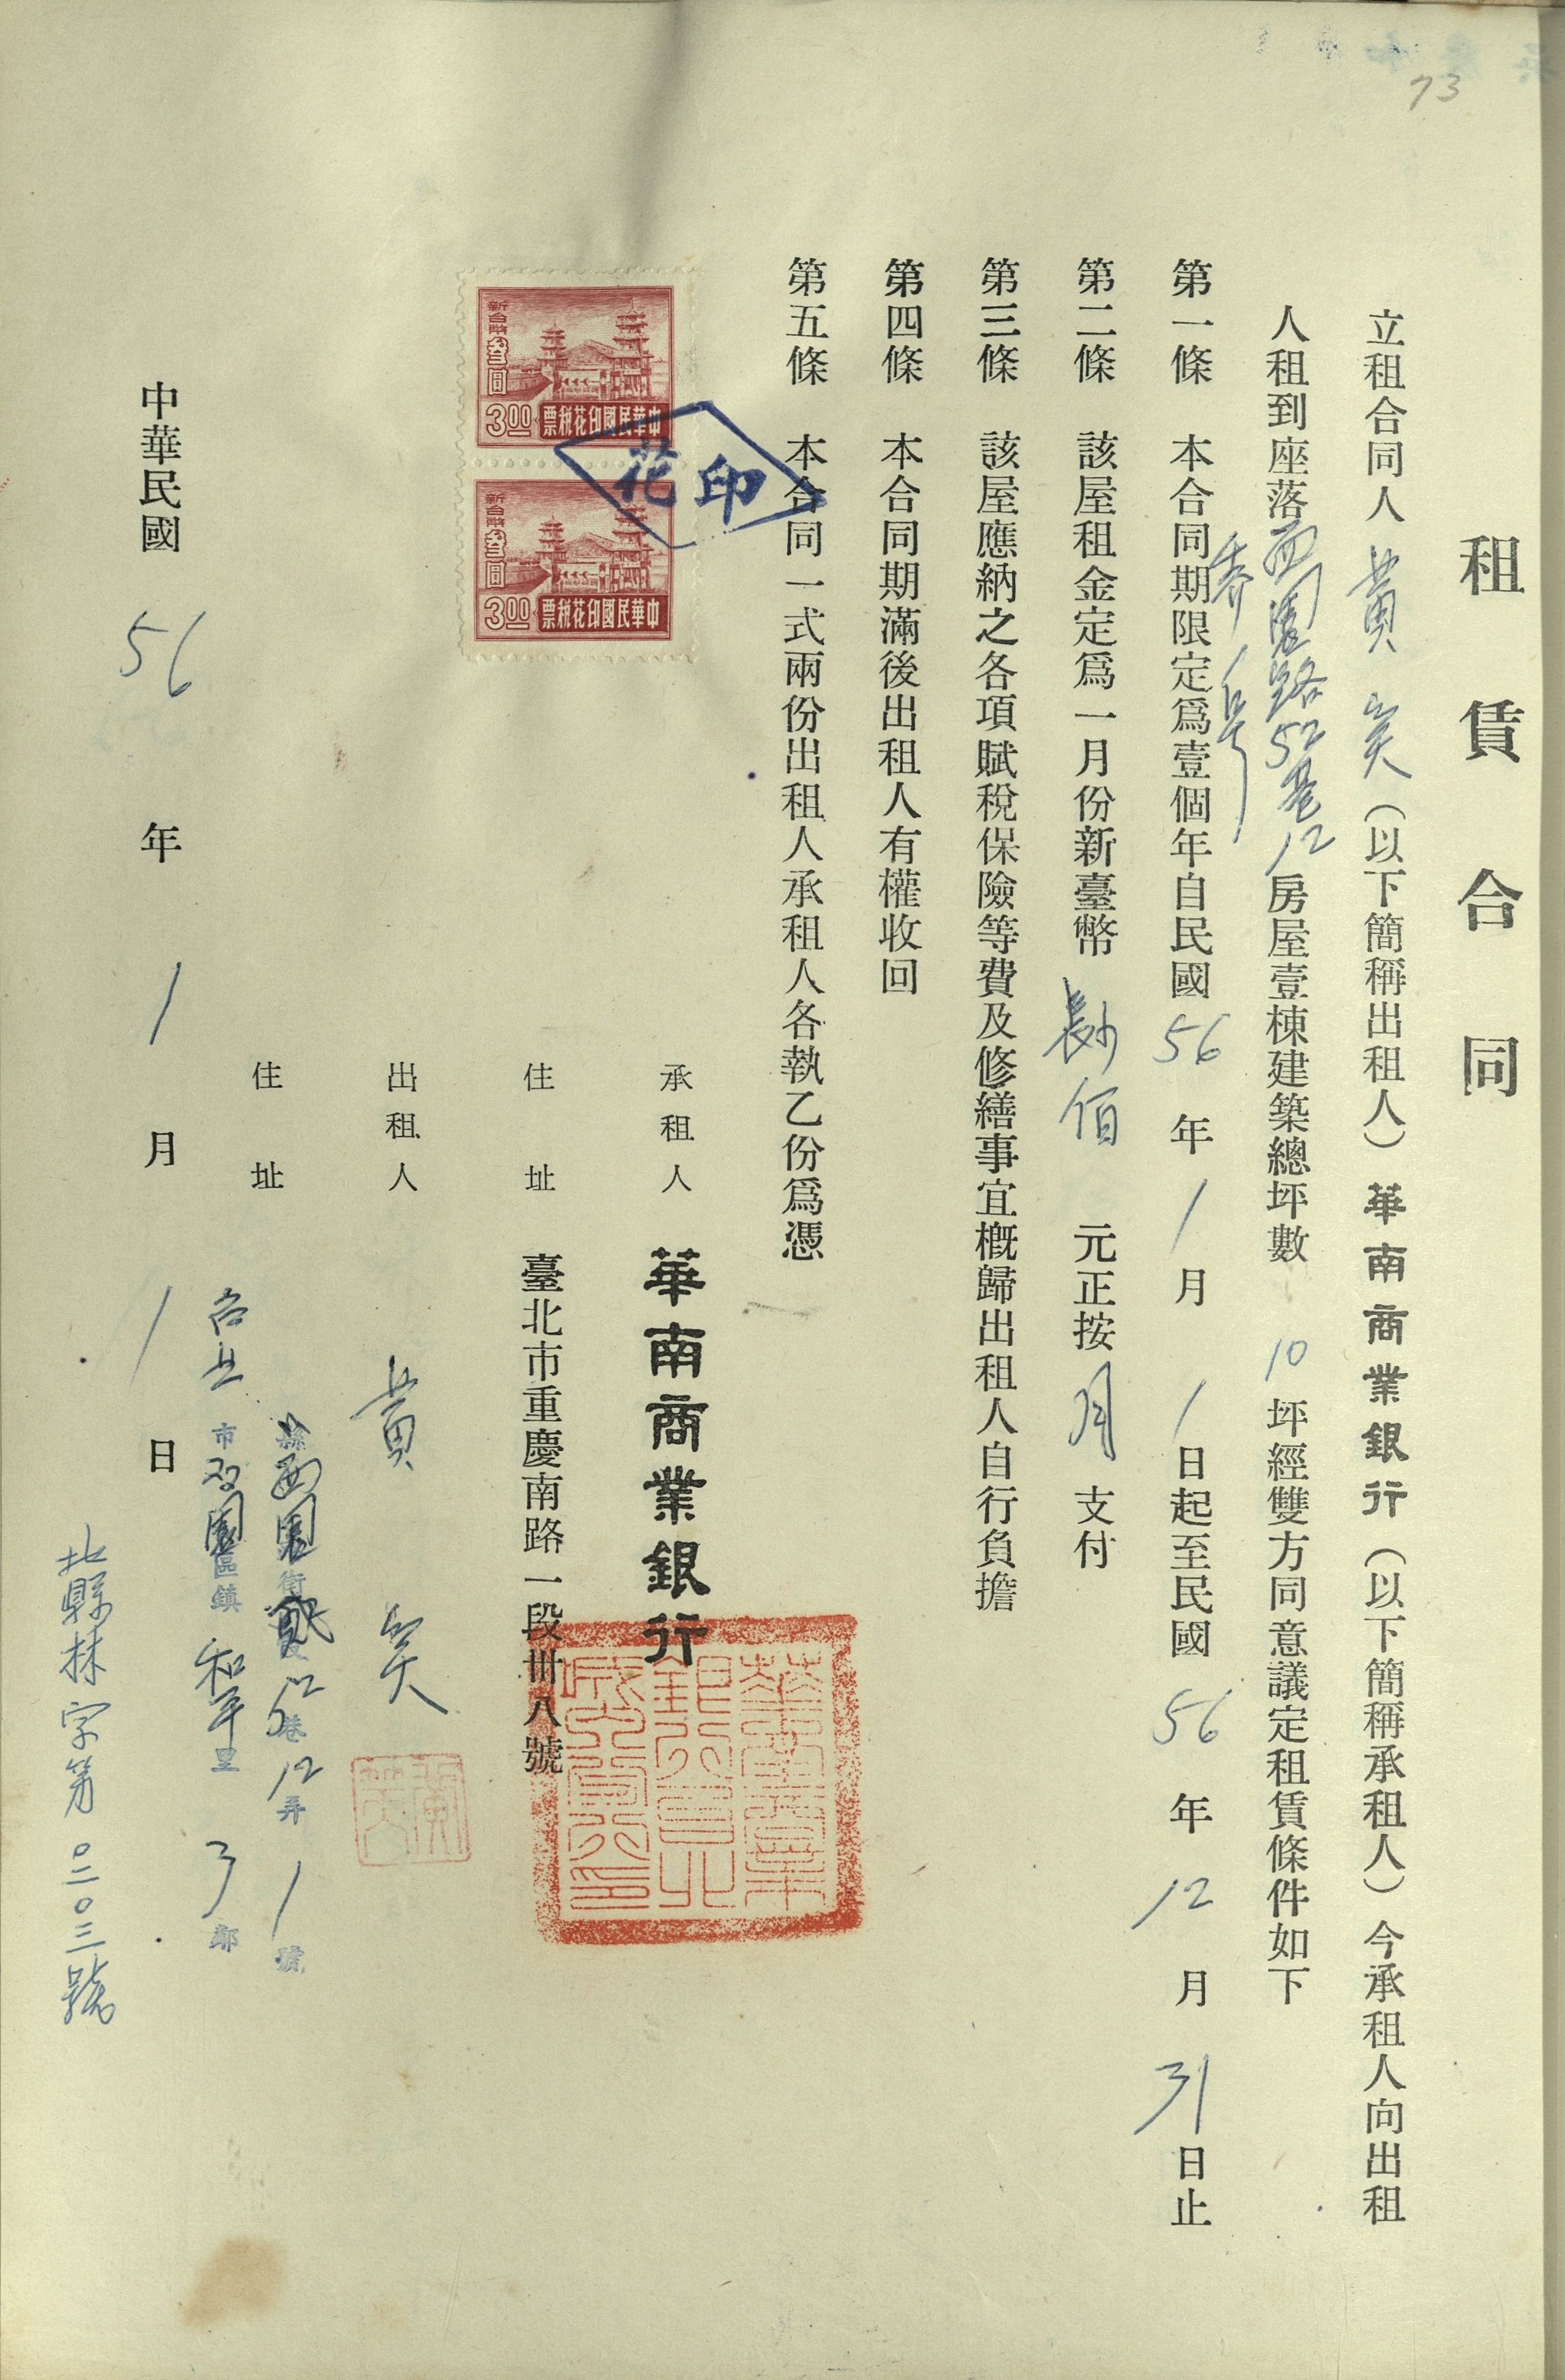 73
租賃合同
立租合同人 黄 笑（以下簡稱出租人）華南商業銀行（以下簡稱承租人）今承租人向出租
人租到座落西園路52巷12弄1号房屋壹棟建築總坪數 10 坪經雙方同意議定租賃條件如下
第一條 本合同期限定爲壹個年自民國 56 年 1 月 1 日起至民國 56 年 12 月 31 日止
第二條 該屋租金定爲一月份新臺幣 佰 元正按 月 支付
第三條 該屋應納之各項賦稅保險等費及修繕事宜概歸出租人自行負擔
第四條 本合同期滿後出租人有權收回
第五條 本合同一式兩份出租人承租人各執乙份爲憑
新台幣叁圓
3.00
中華民國印花稅票
新台幣叁圓
3.00
中華民國印花稅票
印花
承租人 華南商業銀行
住址 臺北市重慶南路一段卅八號
出租人 黄 笑
住址
縣西園街貳段52巷12弄1號
台北市 園區鎮和平里3鄰
中華民國 56 年 1 月 1 日
北縣林字第〇二〇三號